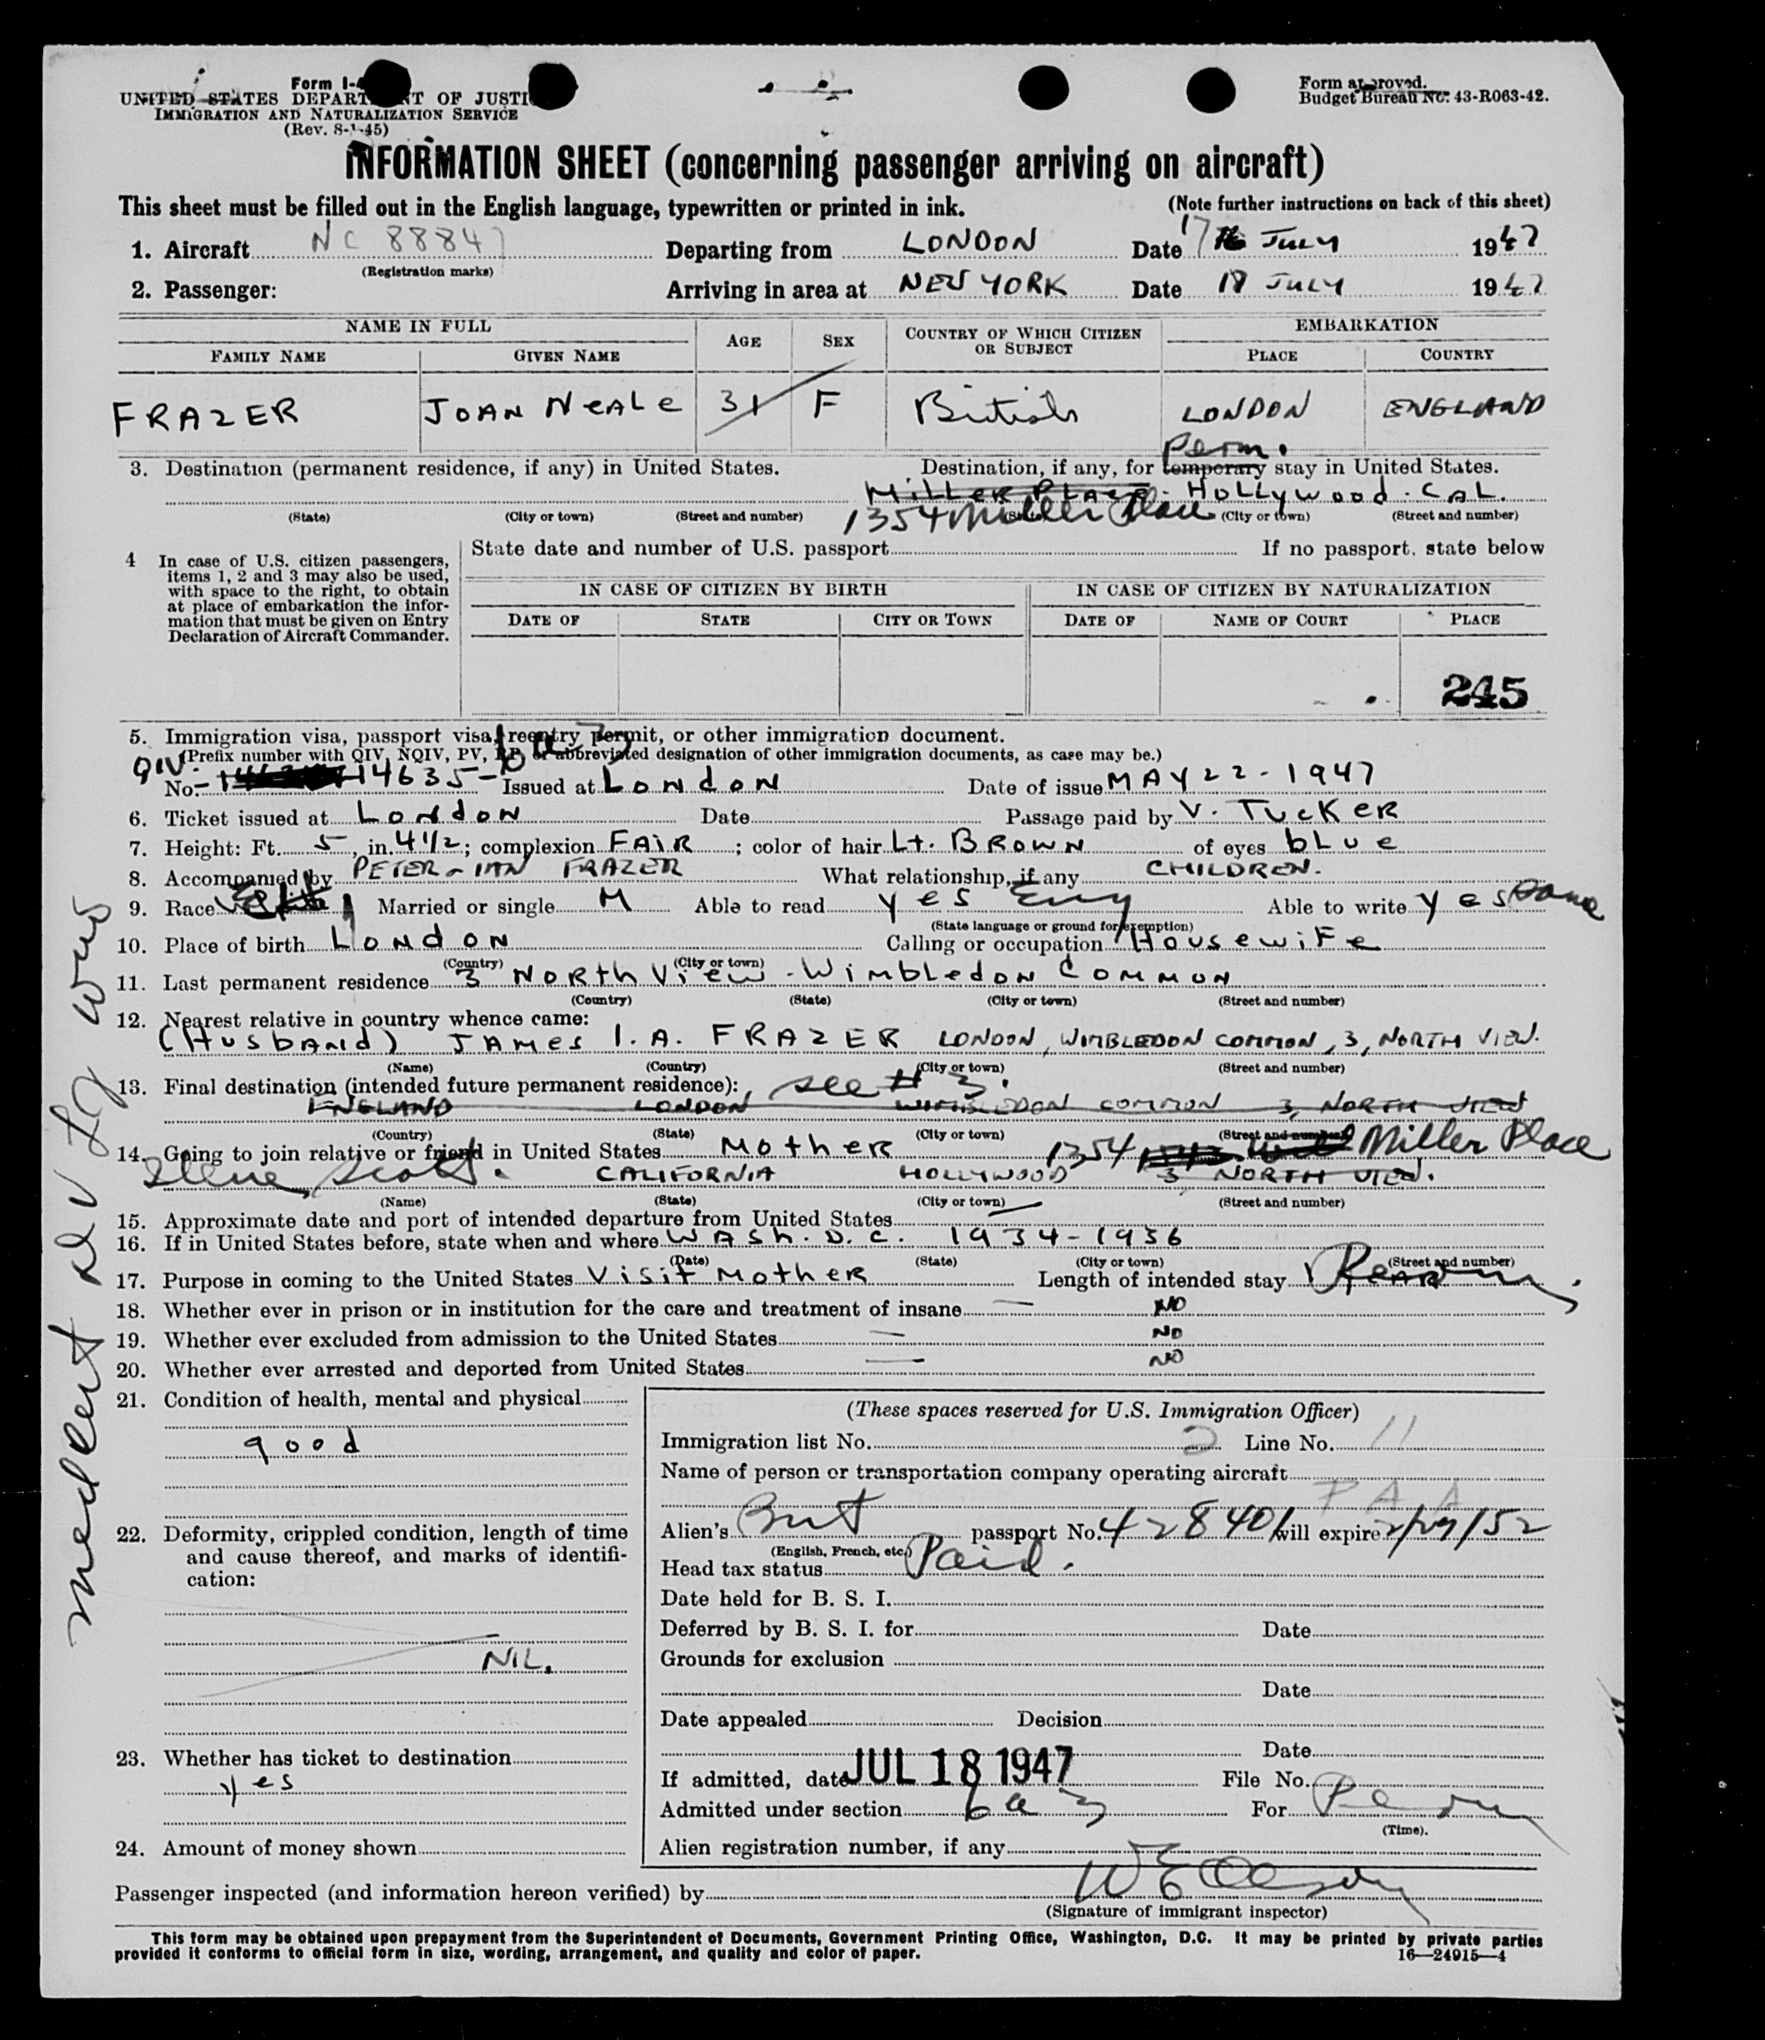 Form I-4
UNITED STATES DEPARTMENT OF JUSTI
IMMIGRATION AND NATURALIZATION SERVICE
(Rev. 8-1-45)
Form approved.
Budget Bureau No. 43-R063-42.
INFORMATION SHEET (concerning passenger arriving on aircraft)
This sheet must be filled out in the English language, typewritten or printed in ink. (Note further instructions on back of this sheet)
1. Aircraft NC 88847 Departing from LONDON Date 17 JULY 1947
(Registration marks)
2. Passenger: Arriving in area at NEW YORK Date 18 JULY 1947
NAME IN FULL AGE SEX COUNTRY OF WHICH CITIZEN OR SUBJECT EMBARKATION
FAMILY NAME GIVEN NAME PLACE COUNTRY
FRAZER JOAN NEALE 31 F British LONDON ENGLAND
Perm.
3. Destination (permanent residence, if any) in United States. Destination, if any, for temporary stay in United States.
MILLER PLACE. HOLLYWOOD. CAL.
1354 Miller Place
(State) (City or town) (Street and number) (State) (City or town) (Street and number)
4 In case of U.S. citizen passengers, items 1, 2 and 3 may also be used, with space to the right, to obtain at place of embarkation the information that must be given on Entry Declaration of Aircraft Commander.
State date and number of U.S. passport If no passport, state below
IN CASE OF CITIZEN BY BIRTH IN CASE OF CITIZEN BY NATURALIZATION
DATE OF STATE CITY OR TOWN DATE OF NAME OF COURT PLACE
245
5. Immigration visa, passport visa, reentry permit, or other immigration document.
(Prefix number with QIV, NQIV, PV, RP or abbreviated designation of other immigration documents, as case may be.)
6 a 3
QIV No. 14635 Issued at London Date of issue MAY 22 - 1947
6. Ticket issued at London Date Passage paid by V. TUCKER
7. Height: Ft. 5, in. 4 1/2; complexion FAIR; color of hair Lt. BROWN of eyes blue
8. Accompanied by PETER - IAN FRAZER What relationship, if any CHILDREN.
9. Race Married or single M Able to read yes Eng Able to write yes Same
(State language or ground for exemption)
10. Place of birth London Calling or occupation Housewife
(Country) (City or town)
11. Last permanent residence 3 North View - Wimbledon Common
(Country) (State) (City or town) (Street and number)
12. Nearest relative in country whence came:
(Husband) JAMES I. A. FRAZER LONDON, WIMBLEDON COMMON, 3, NORTH VIEW.
(Name) (Country) (City or town) (Street and number)
13. Final destination (intended future permanent residence): see # 3.
ENGLAND LONDON WIMBLEDON COMMON 3, NORTH VIEW
(Country) (State) (City or town) (Street and number)
14. Going to join relative or friend in United States Mother 1354 Miller Place
Scott. CALIFORNIA HOLLYWOOD 3, NORTH VIEW.
(Name) (State) (City or town) (Street and number)
15. Approximate date and port of intended departure from United States
16. If in United States before, state when and where WASH. D.C. 1934-1936
(Date) (State) (City or town) (Street and number)
17. Purpose in coming to the United States Visit Mother Length of intended stay 1 YEAR Perm.
18. Whether ever in prison or in institution for the care and treatment of insane NO
19. Whether ever excluded from admission to the United States NO
20. Whether ever arrested and deported from United States NO
21. Condition of health, mental and physical
good
22. Deformity, crippled condition, length of time and cause thereof, and marks of identification:
NIL.
23. Whether has ticket to destination
yes
24. Amount of money shown
(These spaces reserved for U.S. Immigration Officer)
Immigration list No. 2 Line No. 11
Name of person or transportation company operating aircraft
P A A
Alien's Brit passport No. 428401 will expire 2/27/52
(English, French, etc.)
Head tax status Paid.
Date held for B. S. I.
Deferred by B. S. I. for Date
Grounds for exclusion
Date
Date appealed Decision
Date
If admitted, date JUL 18 1947 File No.
Admitted under section 6 a 3 For Perm
(Time).
Alien registration number, if any
Passenger inspected (and information hereon verified) by
(Signature of immigrant inspector)
This form may be obtained upon prepayment from the Superintendent of Documents, Government Printing Office, Washington, D.C. It may be printed by private parties
provided it conforms to official form in size, wording, arrangement, and quality and color of paper. 16—24915—4